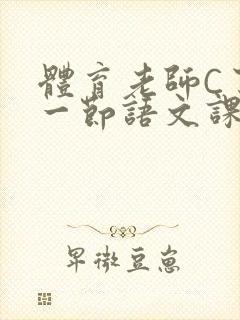 體育老師C
一節語文課
早微豆崽